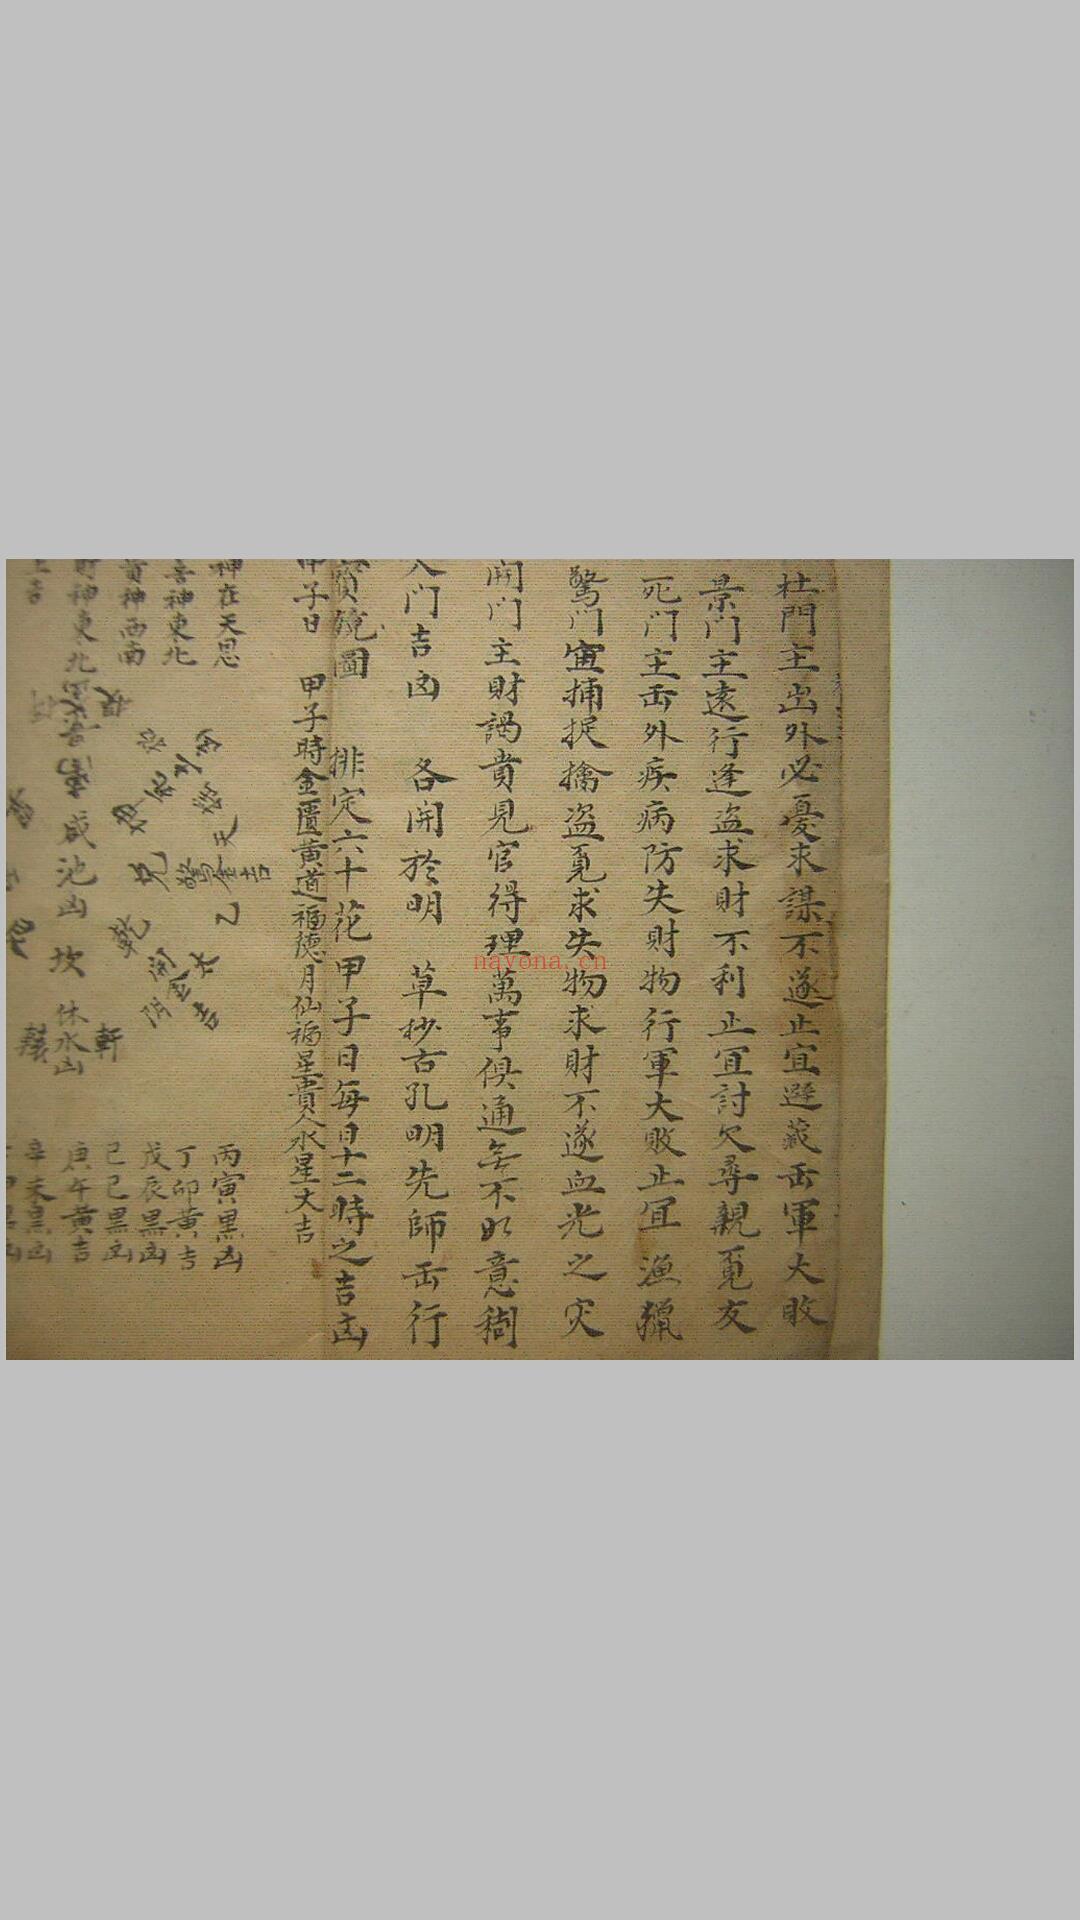 杜門主出外必憂求謀不遂止宜避藏缶軍大敗
景門主遠行逢盗求財不利止宜討欠尋親覔友
死門主缶外疾病防失財物行軍大敗止宜漁獵
驚門宜捕捉擒盗覔求失物求財不遂血光之灾
開門主財謁貴見官得理萬事俱通無不如意
門吉凶 各開於明 草抄古孔明先師缶行
寳鏡圖 排定六十花甲子日每日十二時之吉凶
甲子日 甲子時金匱黄道福德月仙福星貴人水星大吉
神在天恩
喜神東北
貴神西南
財神東北
咸池凶
坎
休水凶
兌
驚金吉
乾
軒轅
丙寅黒凶
丁卯黄吉
戊辰黒凶
己巳黒凶
庚午黄吉
辛未黒凶
nayona.cn